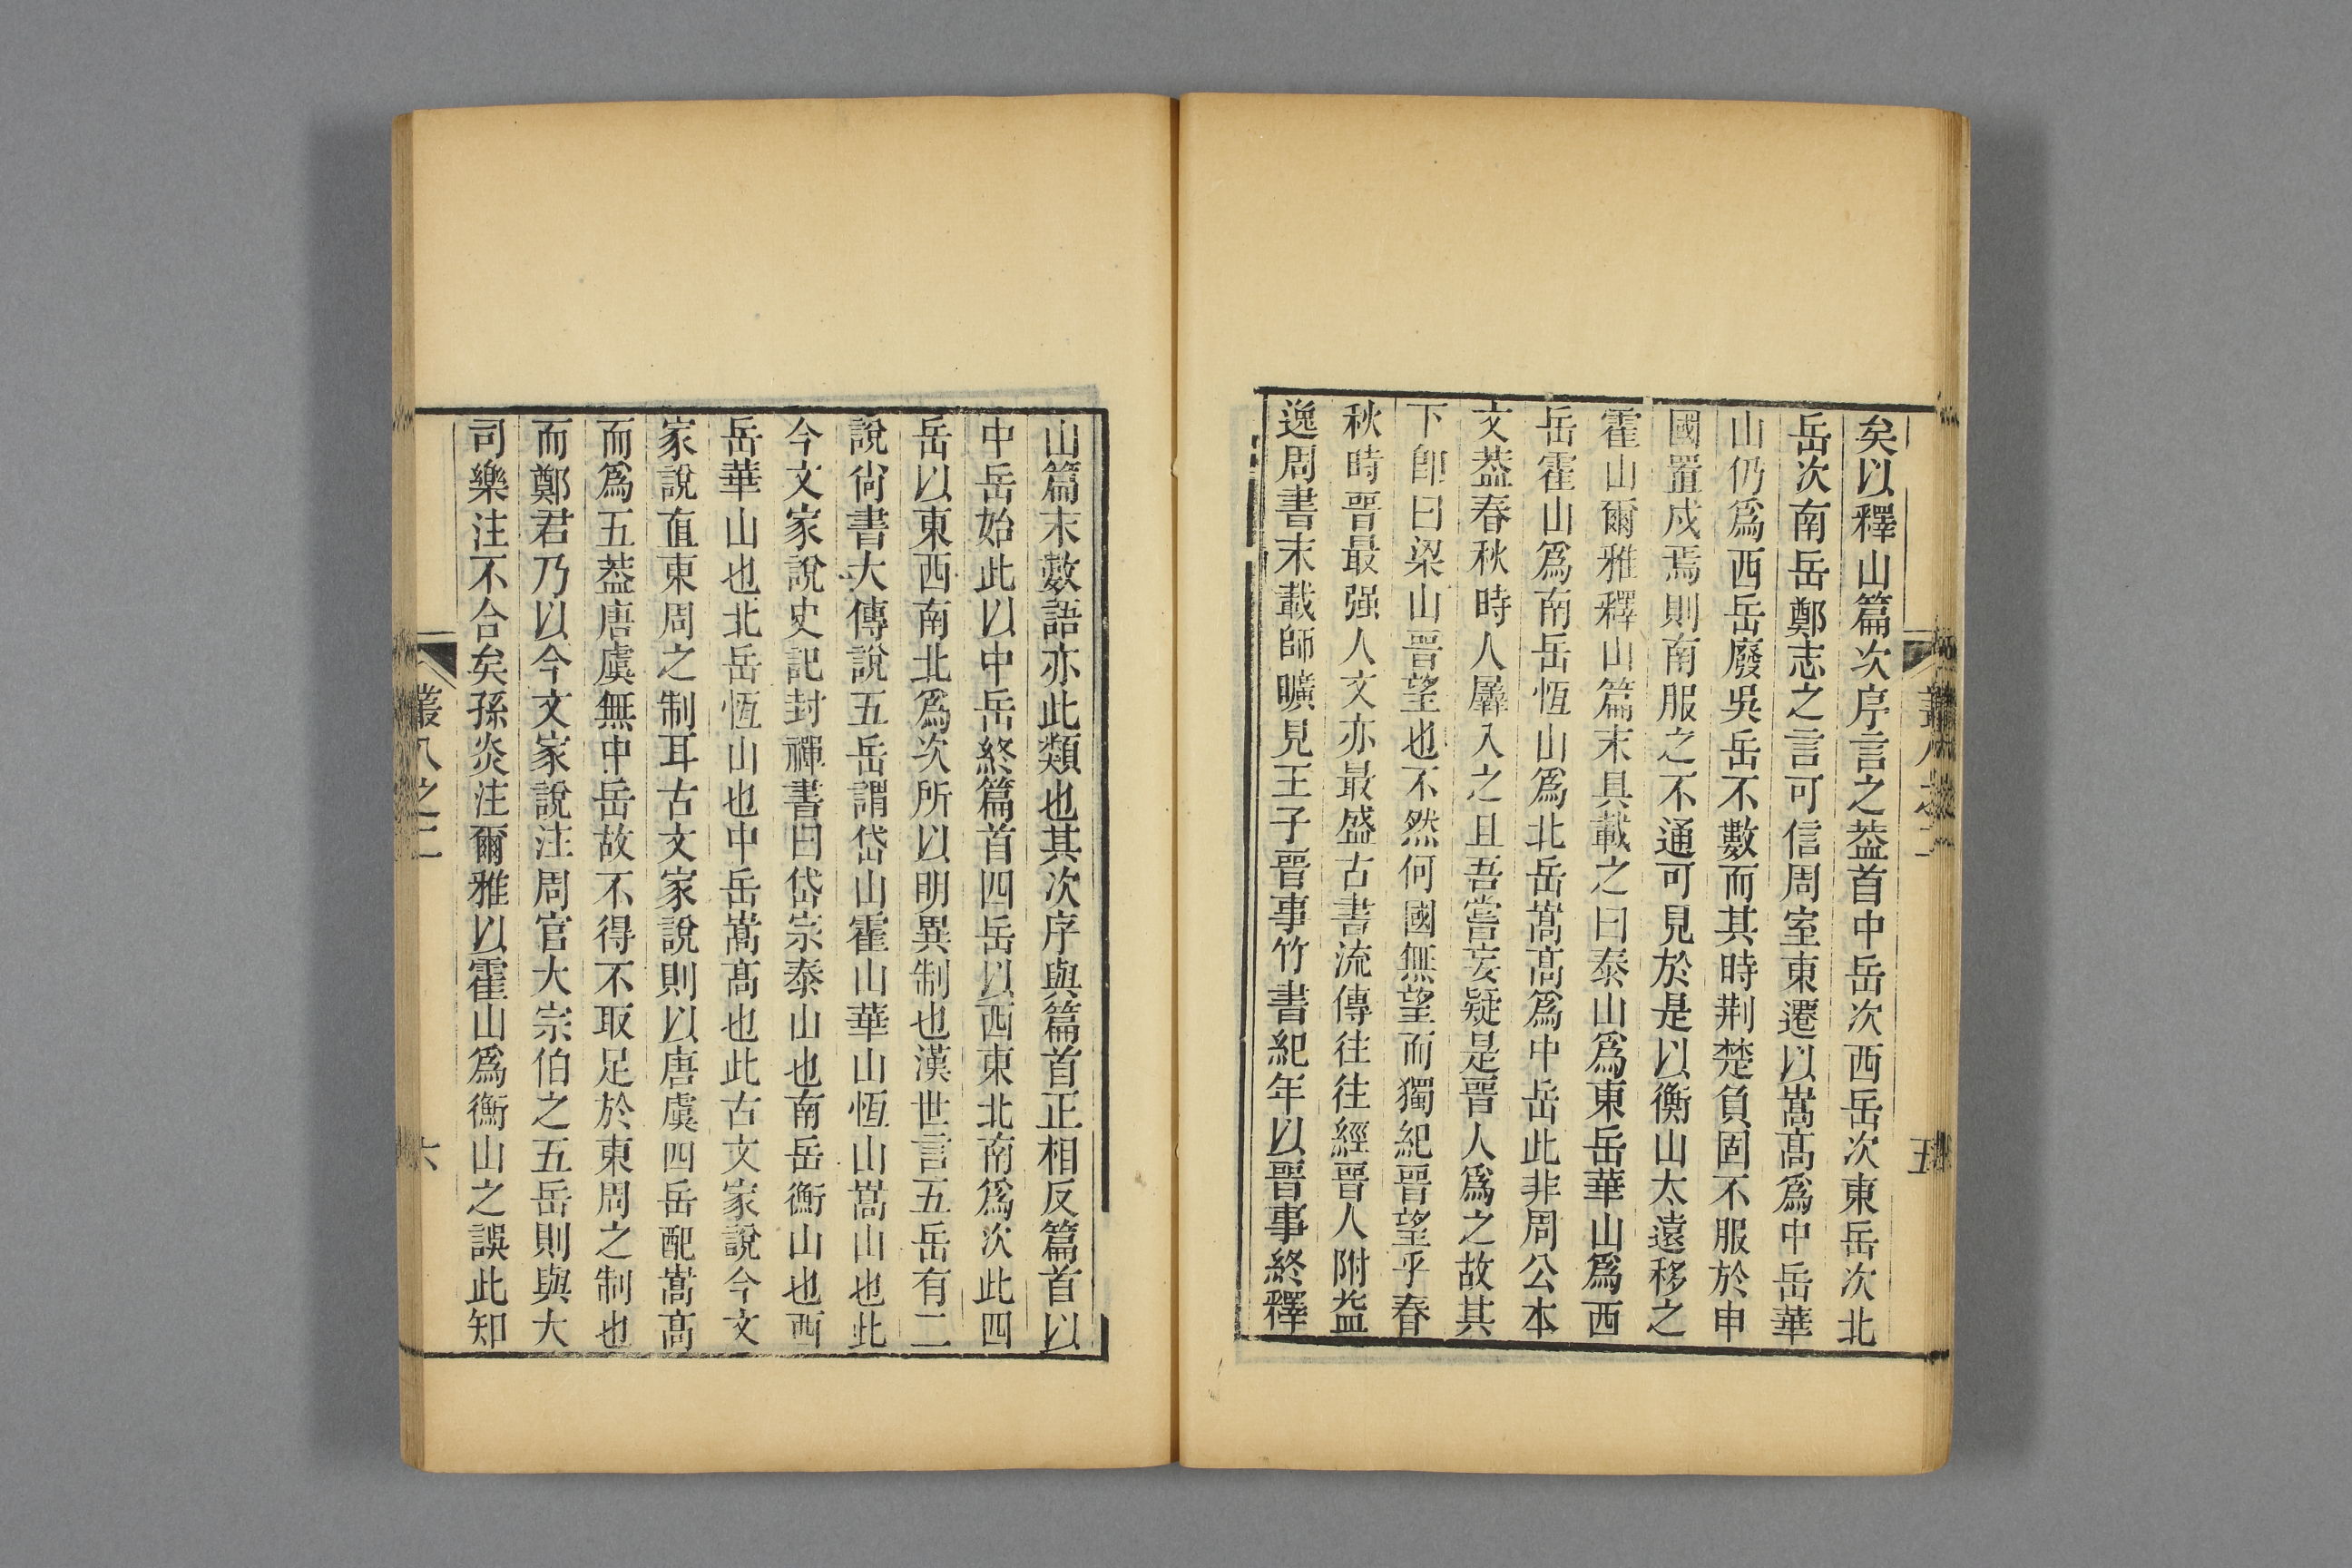 叢八之二
五
矣以釋山篇次序言之葢首中岳次西岳次東岳次北
岳次南岳鄭志之言可信周室東遷以嵩髙爲中岳華
山仍爲西岳廢吳岳不數而其時荆楚負固不服於申
國置戍焉則南服之不通可見於是以衡山太遠移之
霍山爾雅釋山篇末具載之曰泰山爲東岳華山爲西
岳霍山爲南岳恆山爲北岳嵩髙爲中岳此非周公本
文葢春秋時人羼入之且吾嘗妄疑是晉人爲之故其
下卽曰梁山晉望也不然何國無望而獨紀晉望乎春
秋時晉最强人文亦最盛古書流傳往往經晉人附益
逸周書末載師曠見王子晉事竹書紀年以晉事終釋
山篇末數語亦此類也其次序與篇首正相反篇首以
中岳始此以中岳終篇首四岳以西東北南爲次此四
岳以東西南北爲次所以明異制也漢世言五岳有二
說尙書大傳說五岳謂岱山霍山華山恆山嵩山也此
今文家說史記封禪書曰岱宗泰山也南岳衡山也西
岳華山也北岳恆山也中岳嵩髙也此古文家說今文
家說值東周之制耳古文家說則以唐虞四岳配嵩髙
而爲五葢唐虞無中岳故不得不取足於東周之制也
而鄭君乃以今文家說注周官大宗伯之五岳則與大
司樂注不合矣孫炎注爾雅以霍山爲衡山之誤此知
叢八之二
六